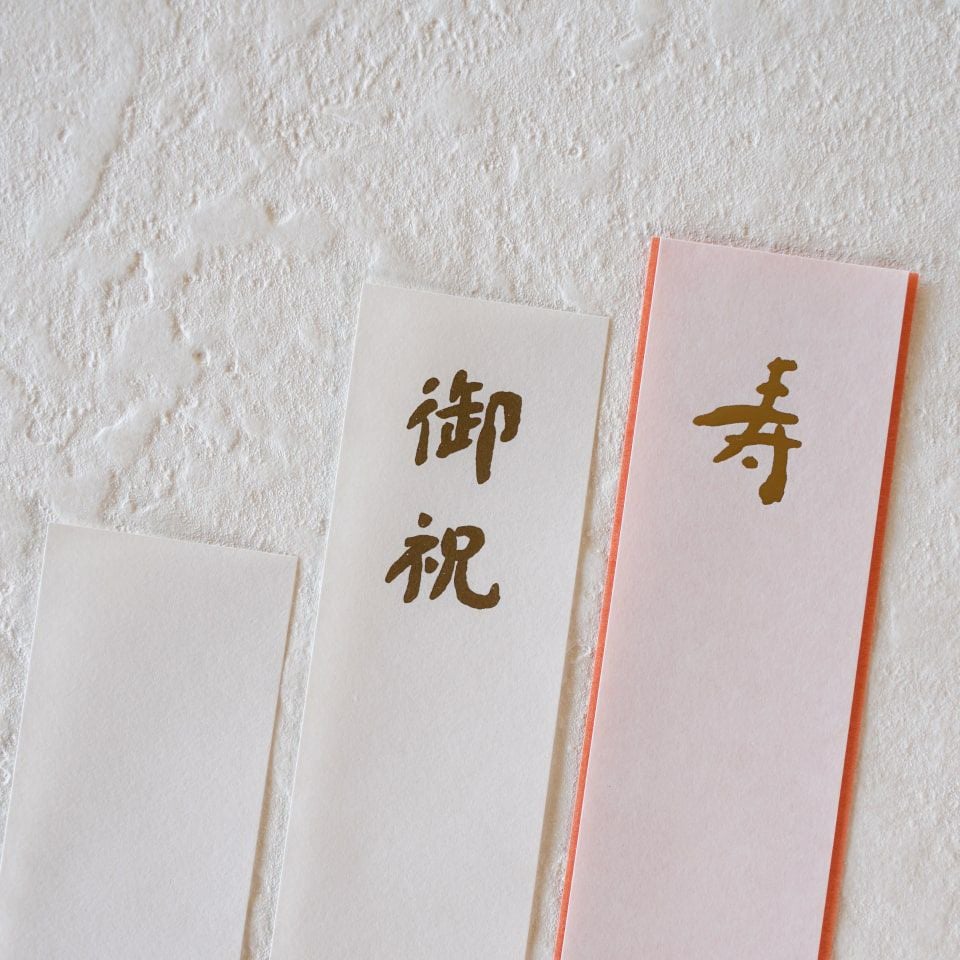 寿
御祝